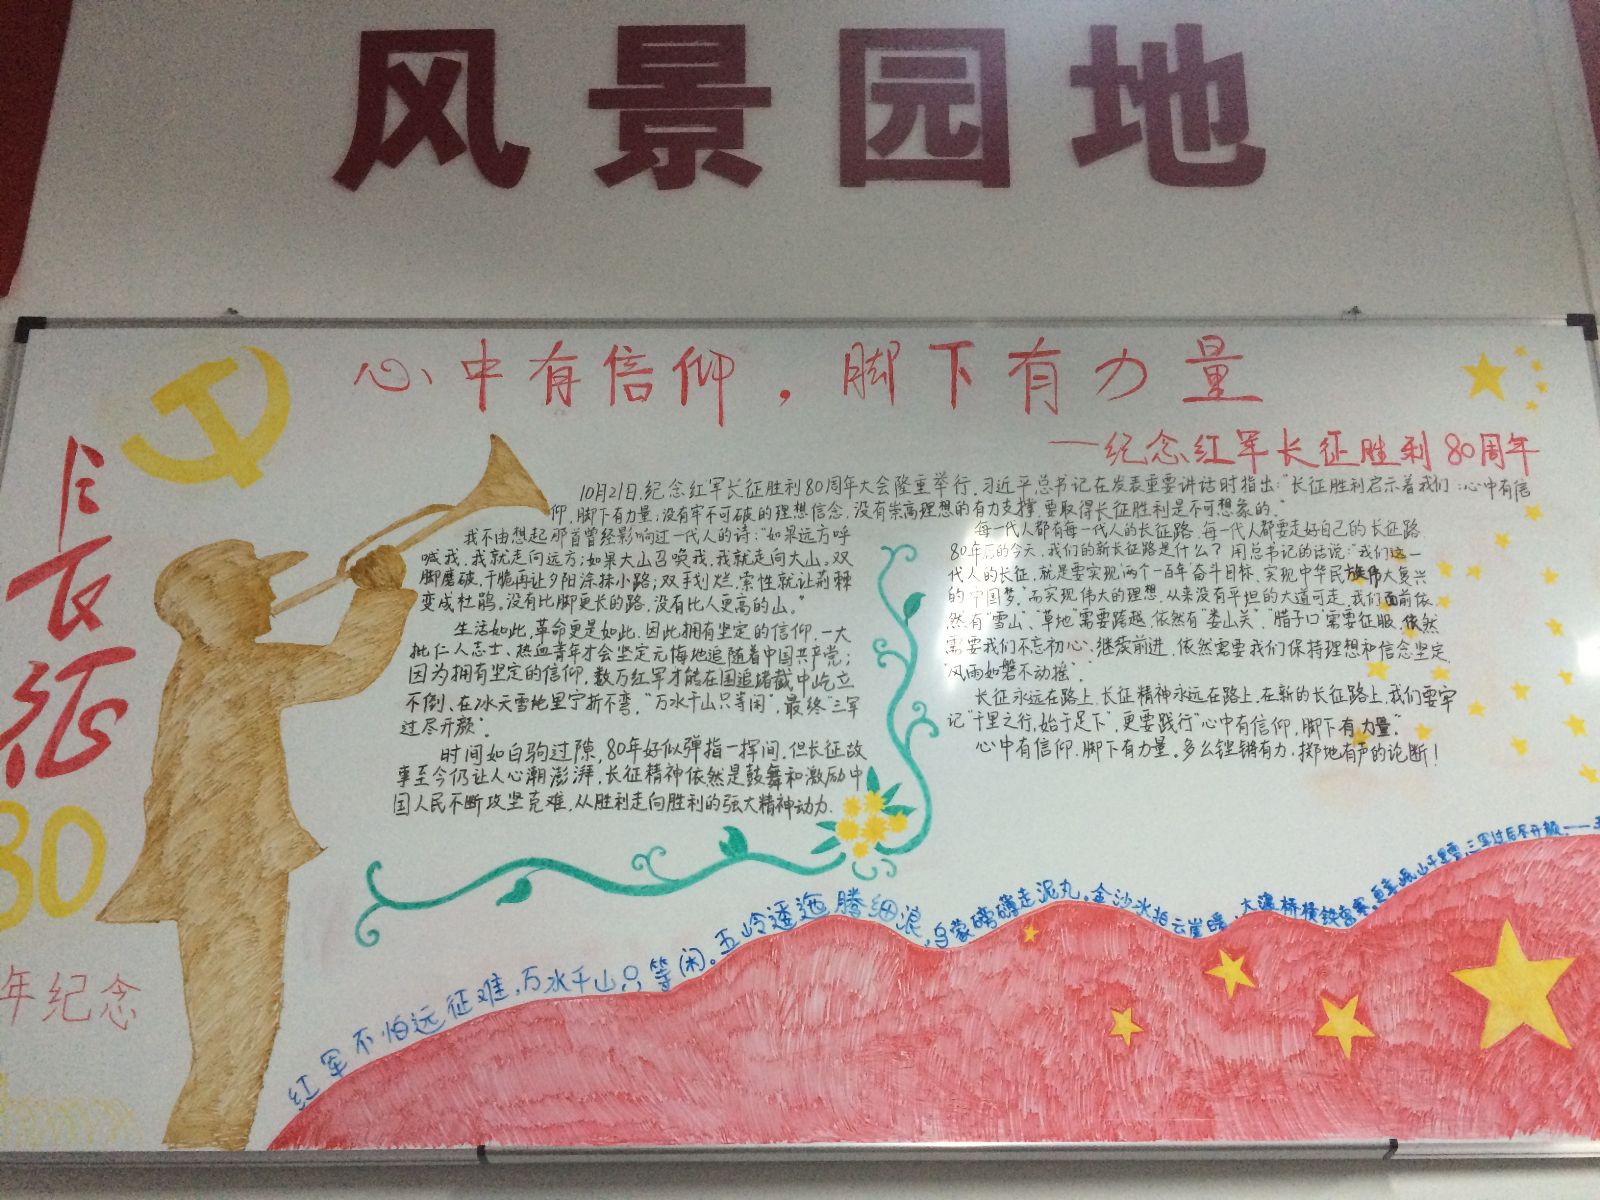 风景园地
心中有信仰，脚下有力量
一纪念红军长征胜利80周年
长征
80
年纪念
10月21日，纪念红军长征胜利80周年大会隆重举行，习近平总书记在发表重要讲话时指出："长征胜利启示着我们：心中有信
仰，脚下有力量；没有牢不可破的理想信念，没有崇高理想的有力支撑，要取得长征胜利是不可想象的。"
我不由想起那首曾经影响过一代人的诗："如果远方呼
喊我，我就走向远方；如果大山召唤我，我就走向大山。双
脚磨破，干脆再让夕阳涂抹小路；双手划烂，索性就让荆棘
变成杜鹃。没有比脚更长的路，没有比人更高的山。"
生活如此，革命更是如此。因此拥有坚定的信仰，一大
批仁人志士、热血青年才会坚定无悔地追随着中国共产党；
因为拥有坚定的信仰，数万红军才能在围追堵截中屹立
不倒、在冰天雪地里宁折不弯，"万水千山只等闲"，最终"三军
过尽开颜"。
时间如白驹过隙，80年好似弹指一挥间，但长征故
事至今仍让人心潮澎湃，长征精神依然是鼓舞和激励中
国人民不断攻坚克难，从胜利走向胜利的强大精神动力。
每一代人都有每一代人的长征路，每一代人都要走好自己的长征路
80年后的今天，我们的新长征路是什么？用总书记的话说："我们这一
代人的长征，就是要实现'两个一百年'奋斗目标、实现中华民族伟大复兴
的中国梦。"而实现伟大的理想，从来没有平坦的大道可走，我们面前依
然有"雪山"、"草地"需要跨越，依然有"娄山关"、"腊子口"需要征服，依然
需要我们不忘初心、继续前进，依然需要我们保持理想和信念坚定，
"风雨如磐不动摇"。
长征永远在路上，长征精神永远在路上，在新的长征路上，我们要牢
记"千里之行，始于足下"，更要践行"心中有信仰，脚下有力量"。
心中有信仰，脚下有力量。多么铿锵有力、掷地有声的论断！
红军不怕远征难，万水千山只等闲。五岭逶迤腾细浪，乌蒙磅礴走泥丸。金沙水拍云崖暖，大渡桥横铁索寒。更喜岷山千里雪，三军过后尽开颜。——